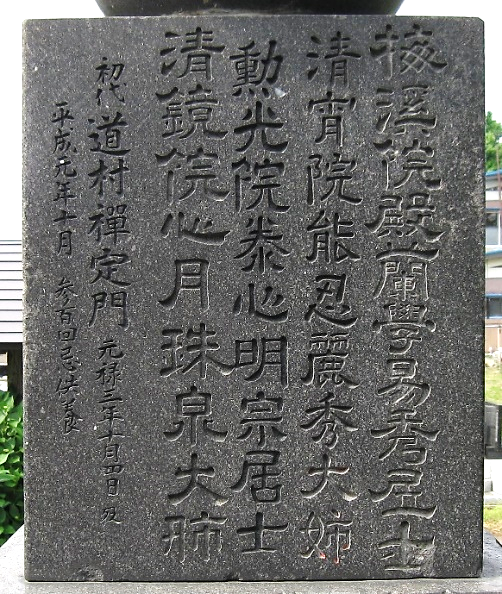 梅溪院殿蘭學易秀居士
清宵院能忍麗秀大姉
勲光院泰心明宗居士
清鏡院心月珠泉大姉
初代道村禪定門 元禄三年十月四日 歿
平成元年十月 参百回忌供養